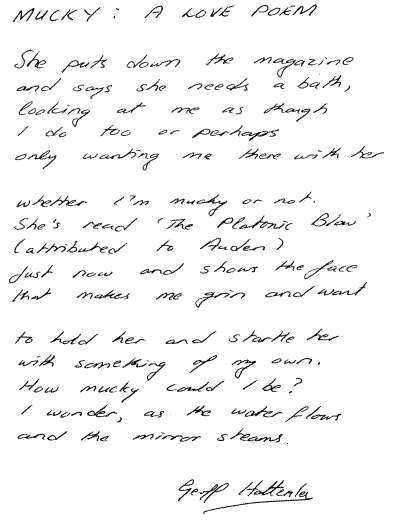 MUCKY: A LOVE POEM
She puts down the magazine
and says she needs a bath,
looking at me as though
I do too or perhaps
only wanting me there with her
whether I'm mucky or not.
She's read 'The Platonic Blow'
(attributed to Auden)
just now and shows the face
that makes me grin and want
to hold her and startle her
with something of my own.
How mucky could I be?
I wonder, as the water flows
and the mirror steams.
Geoff